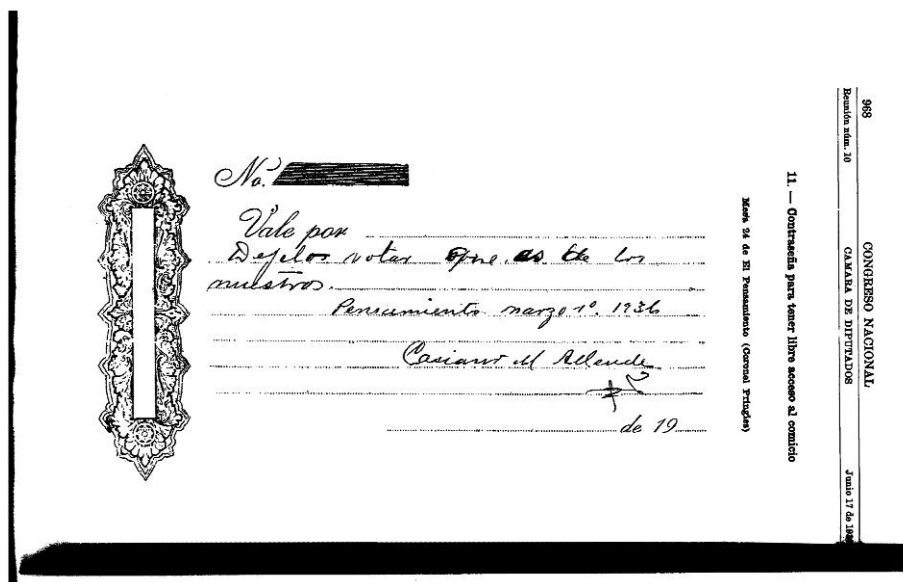 968
CONGRESO NACIONAL
Reunión núm. 10
CAMARA DE DIPUTADOS
Junio 17 de
11. — Contraseña para tener libre acceso al comicio
Mesa 24 de El Pensamiento (Coronel Pringles)
No.
Vale por
Dejelos votar que es de los
nuestros.
Pensamiento marzo 1º. 1936
Casiano M Allende
de 19